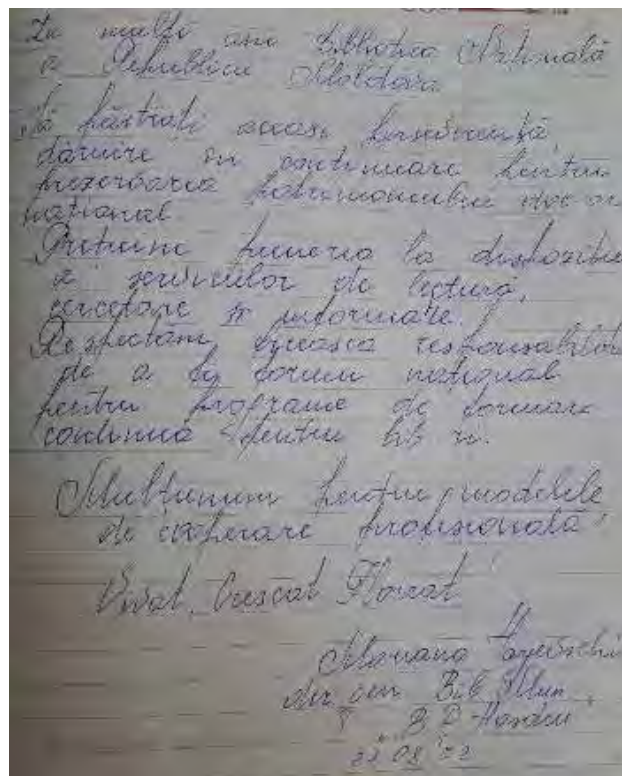 La mulți ani Biblioteca Națională
a Republicii Moldova
Să păstrați aceeași
dăruire în continuare pentru
prezervarea patrimoniului
național
Prețuim punerea la dispoziție
a serviciilor de lectură,
cercetare și informare.
Respectăm responsabilitatea
de a fi forum național
pentru programe de formare
continuă pentru
Mulțumim pentru modelele
de cooperare profesională!
Vivat, Crescat, Floreat!
Mariana Harjevschi
dir gen Bib Mun
B P Hasdeu
22 08 22